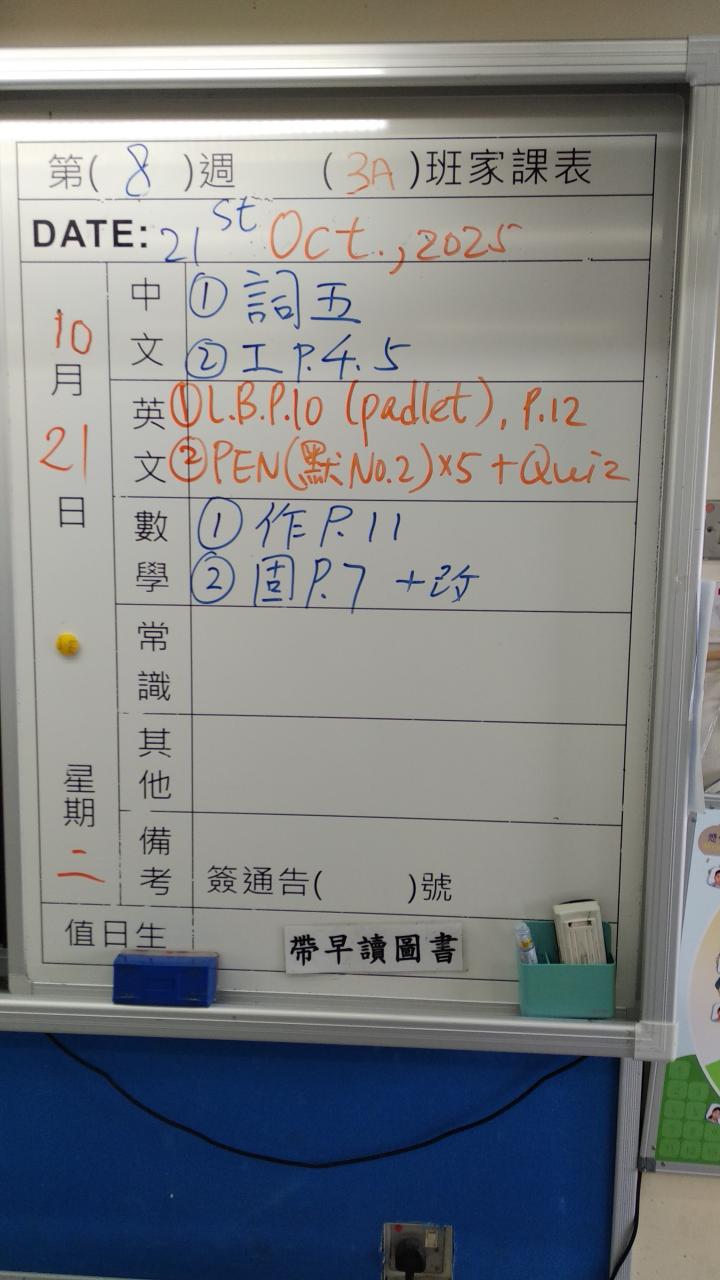 第( 8 )週 ( 3A )班家課表
DATE: 21st Oct., 2025
10月21日
星期二
中文
① 詞五
② 工 P.4.5
英文
① L.B.P.10 (padlet), P.12
② PEN(默No.2)×5 + Quiz
數學
① 作P.11
② 固P.7 +改
常識
其他
備考
簽通告( )號
值日生
帶早讀圖書